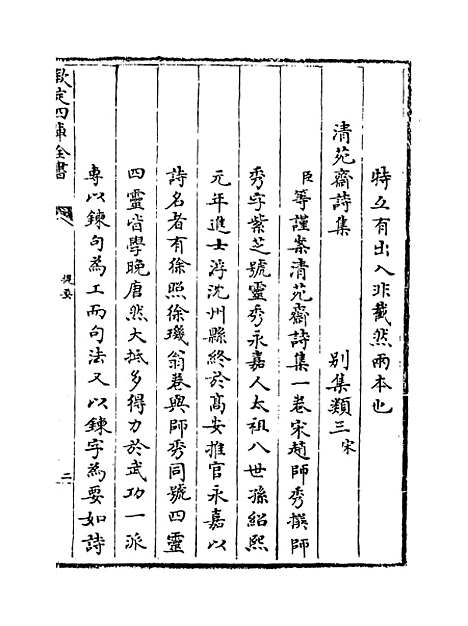 特互有出入非截然兩本也
清苑齋詩集　別集類三宋
臣等謹案清苑齋詩集一卷宋趙師秀撰師
秀字紫芝號靈秀永嘉人太祖八世孫紹熙
元年進士浮沈州縣終於高安推官永嘉以
詩名者有徐照徐璣翁卷與師秀同號四靈
四靈皆學晚唐然大抵多得力於武功一派
專以鍊句為工而句法又以鍊字為要如詩
欽定四庫全書
提要
二